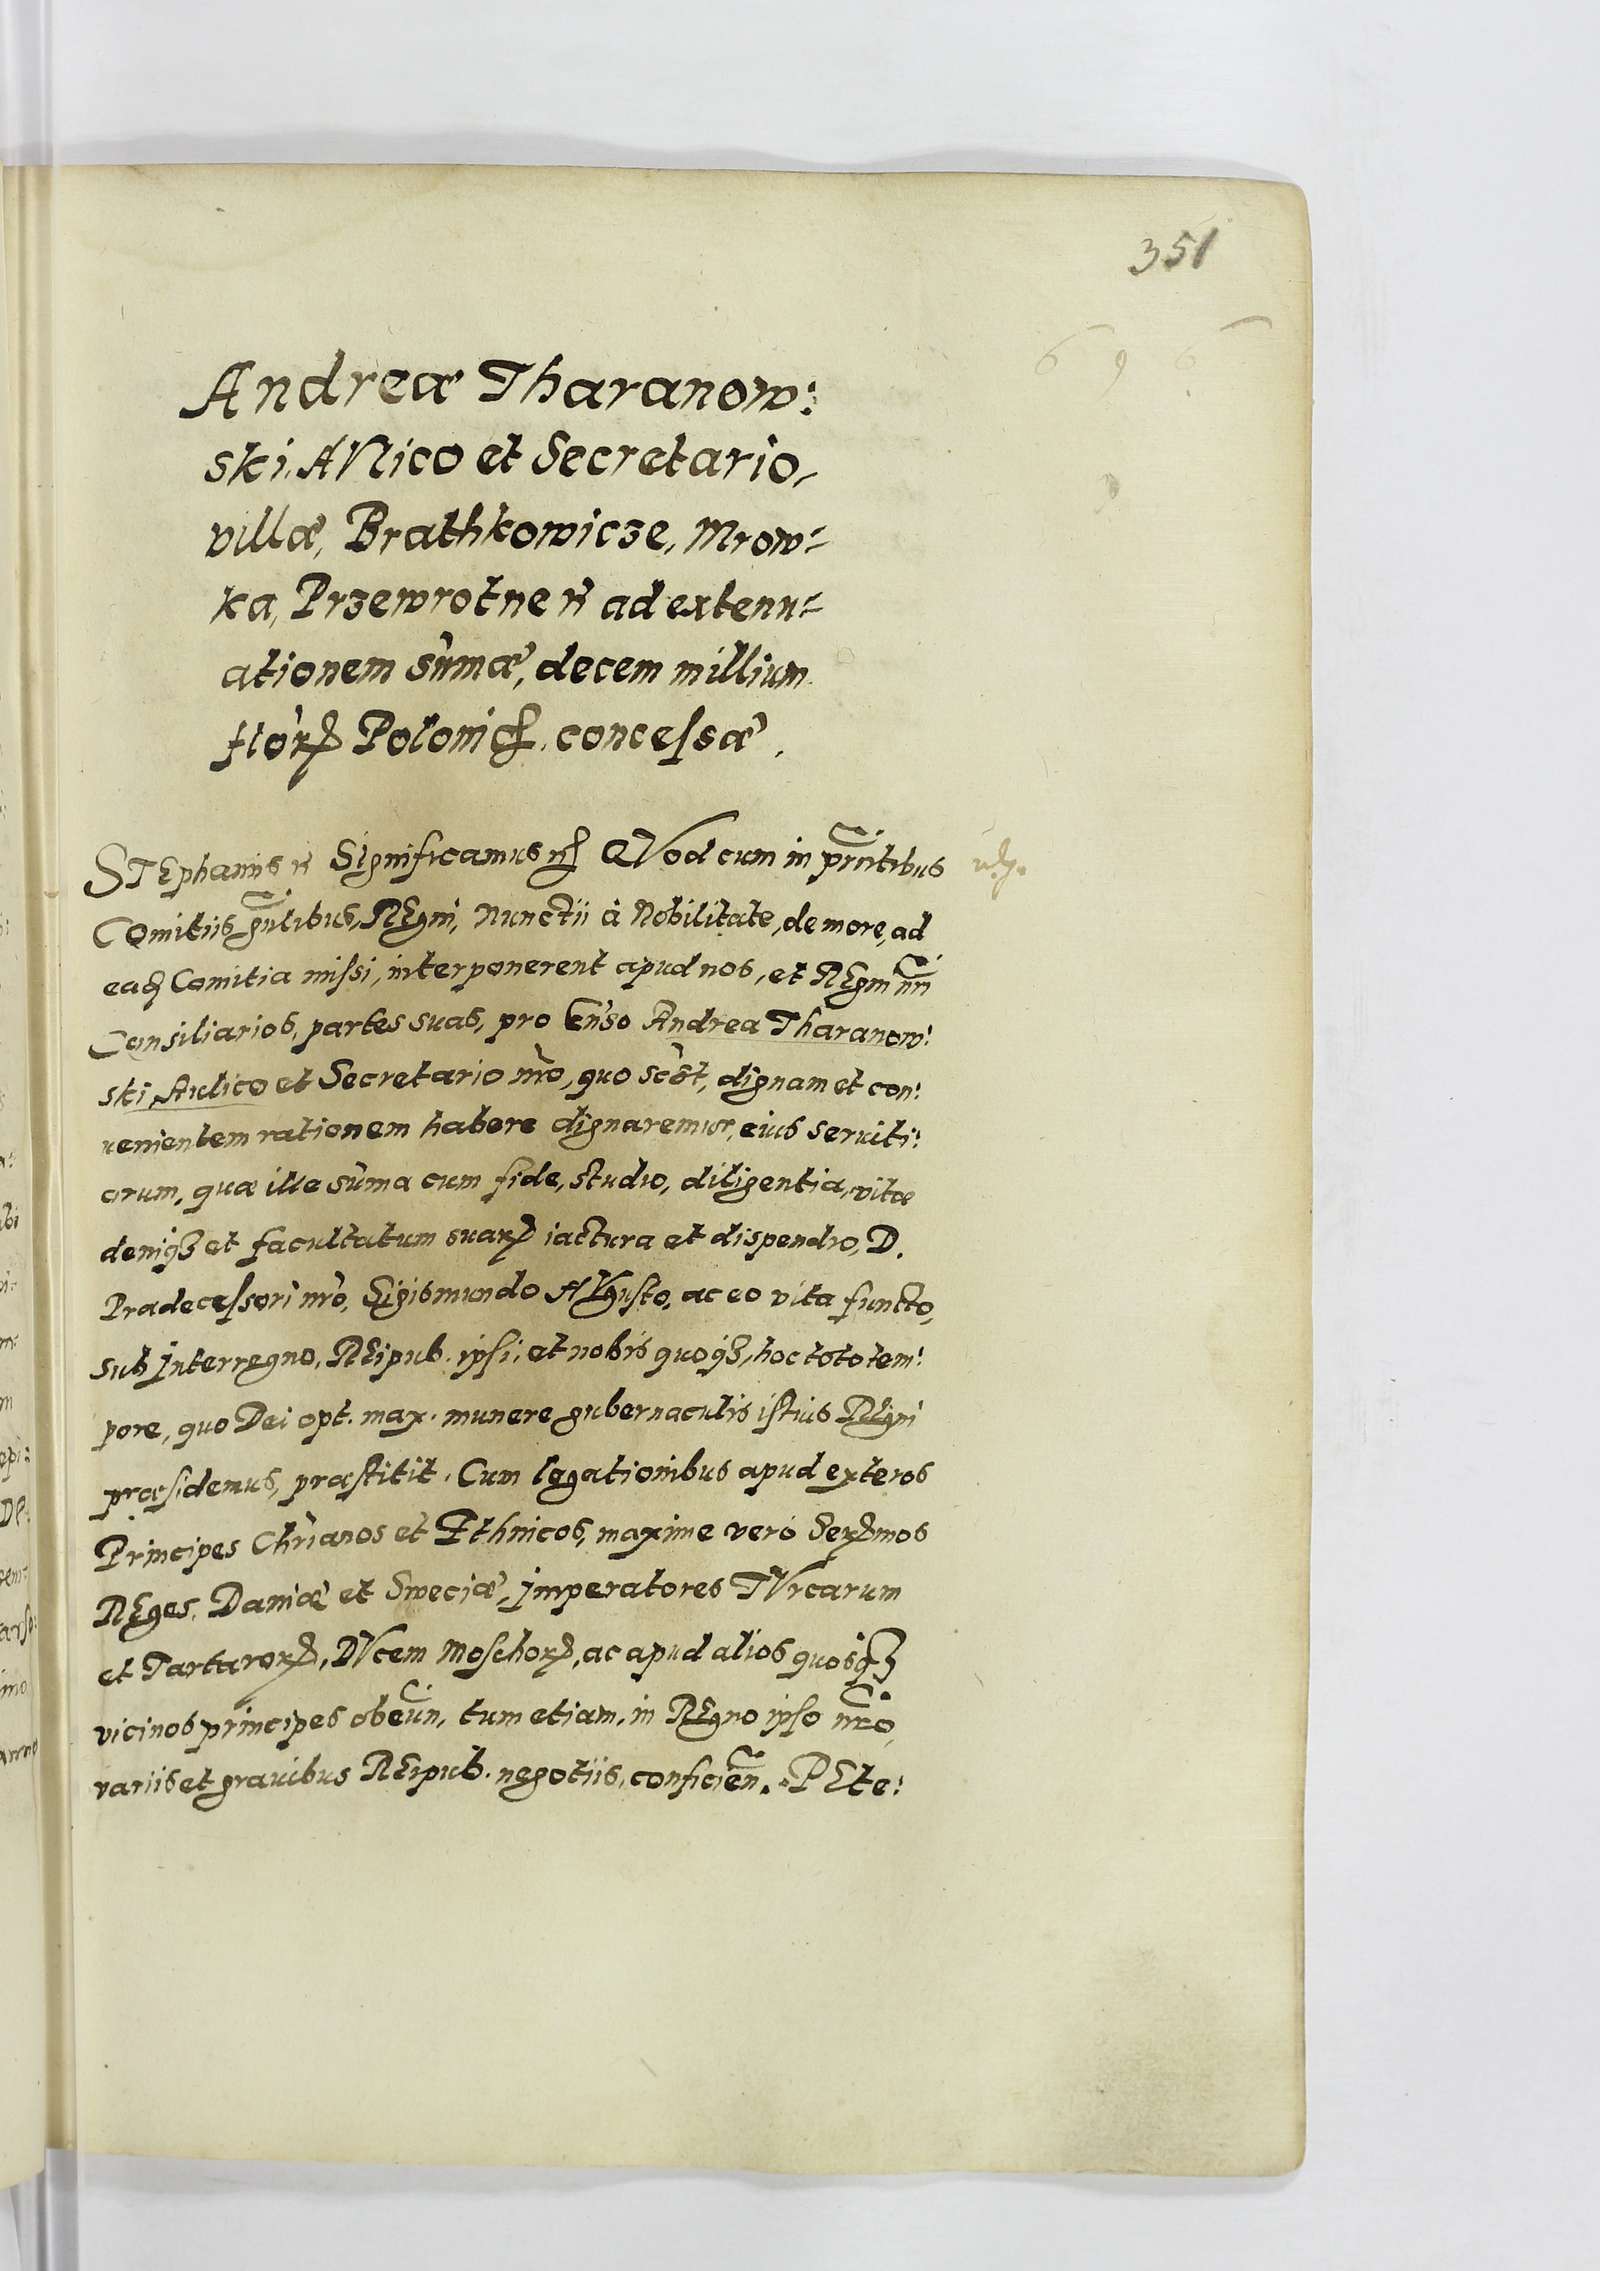 351
696
Andreæ Tharanow:
ski, AVlico et Secretario,
villæ, Brathkowicze, Mrow=
ka, Przewrotne ad extenu=
ationem sūmæ, decem millium
flor̄ Poloniꝝ, concessæ.
STEphanus Significamus QVod cum in prn̄tibus
COmitiis gn̄libus, REgni, Nunctii à Nobilitate, de more, ad
eadꝫ Comitia missi, interponerent apud nos, et REgni nr̄i
Consiliarios, partes suas, pro Gn̄so Andrea Tharanow:
ski Aulico et Secretario nr̄o, quo dignam et con:
uenientem rationem habere dignaremur, eius seruiti:
orum, quæ ille sūma cum fide, studio, diligentia, vitæ
deniqꝫ et facultatum suarꝝ iactura et dispendio, D.
Prædecessori nr̄o, Sigismundo AVgusto, ac eo vita functo,
sub jnterregno, REipub. ipsi, et nobis quoqꝫ, hoc toto tem:
pore, quo Dei opt. max. munere gubernaculis istius REgni
præsidemus, præstitit. Cum legationibus apud exteros
Principes Chr̄ianos et Ethnicos, maxime verò Serꝫmos
REges, Daniæ et Sweciæ, jmperatores TVrcarum
et Tartarorꝝ, DVcem Moschorꝝ, ac apud alios quosqꝫ
vicinos principes obeūn, tum etiam, in REgno ipso nr̄o,
variis et grauibus REipub. negotiis, conficien̄. PEte: